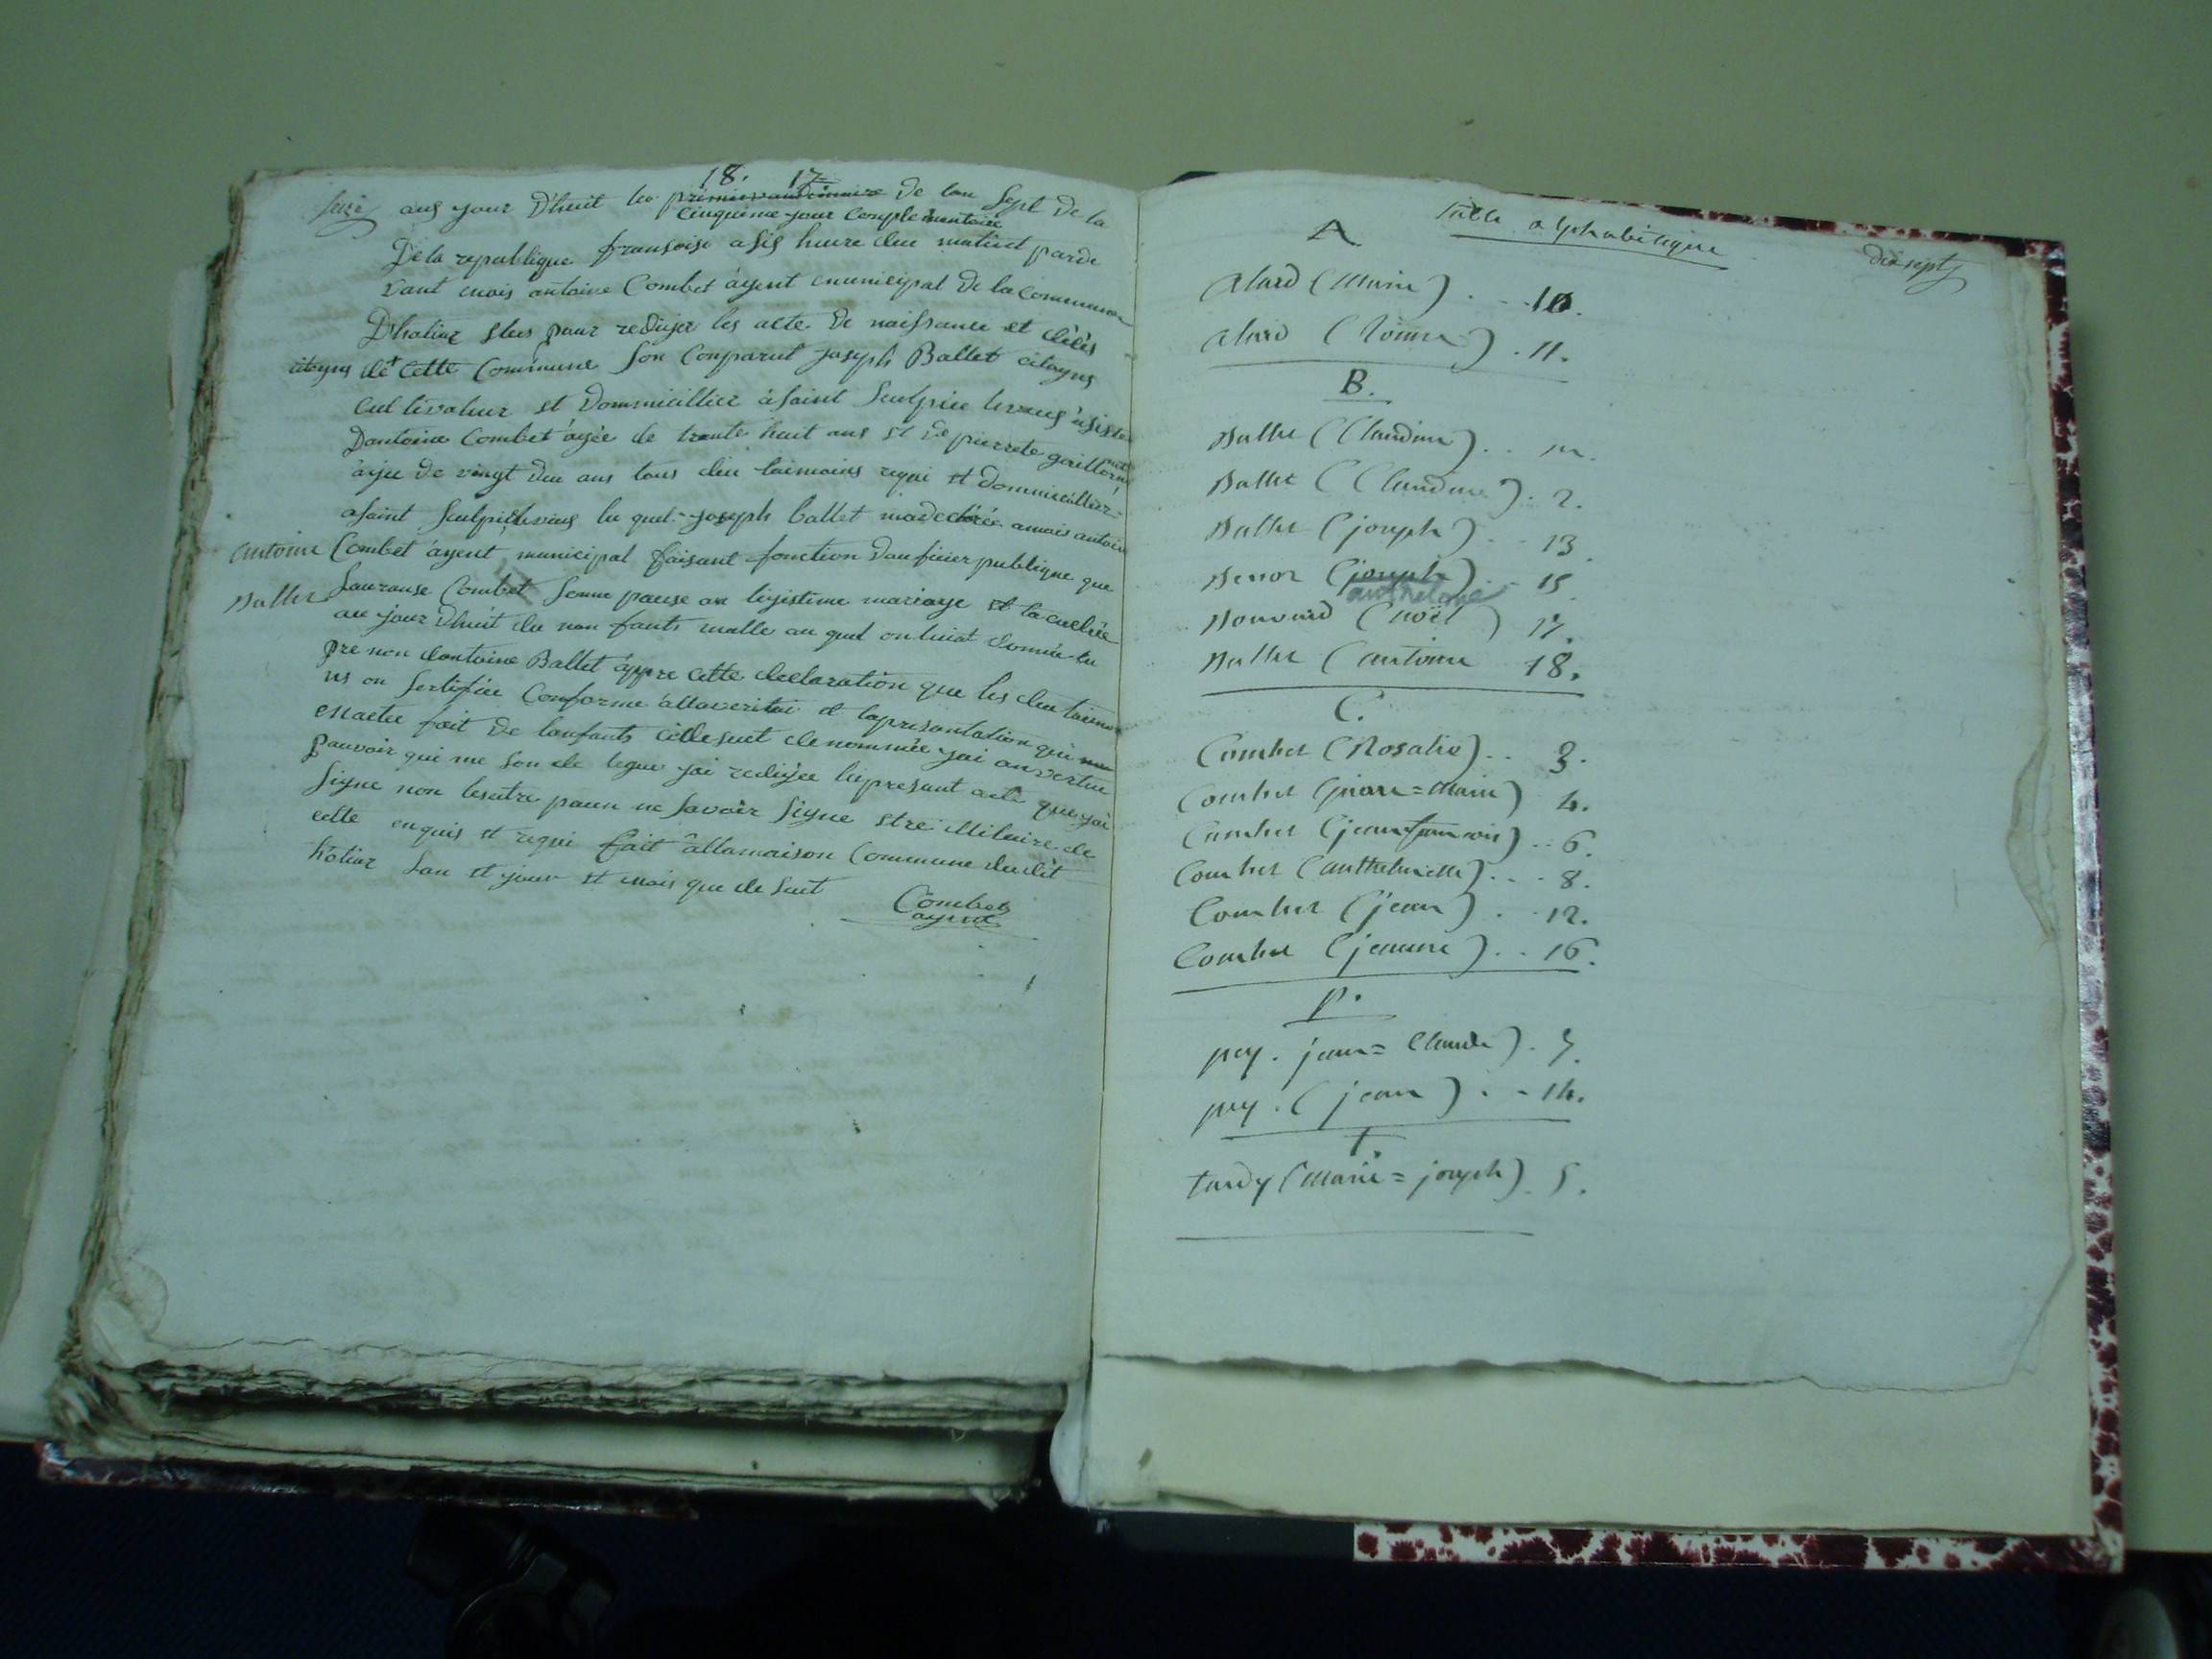 18. 17
seize aus jour D'huit les premiervandimiaire de lan Sept de la
cinquieme jour Complemantaire
De la republique fransoise a sis heure deu matint parde
vant mois antoine Combet agent municipal De la Commune
D'hotiar pour rediger les acte De naissance et
citoyens de cette Commune Son Conparut joseph Ballet citoyens
cultivateur et Dommicillier à Saint Seulpice
Dantoine Combet agée de trante huit ans et de pierrete
agee De vingt Deu ans tous deu taimoins requi et dommicillier
a Saint le quel joseph ballet amois antoine
antoine Combet agent municipal faisant fonction publique que
Ballet Combet Senne pouse an legistime mariage et
au jour D'huit malle au quel on luiat donnée le
pre non dantoine Ballet appre cette declaration que les deu taimoi
ns on Sertifiée Conforme allaveritai et lapresantation qui
exactee fait De lanfants denommée jai anvertue
pauvoir qui me son de legue jai redigée lepresant acte que jai
signe non lesautre pour ne Savoir Signe
cette enquis et requi fait allamaison Commune dudit
hotiar lan et jour et mois que de Suit
Combet
agent
Table alphabétique
dix sept
A
Alard (Marie) . - - 10.
alard ( ) . 11.
B.
Ballet (Claudine) . .
Ballet (Claudine) . 2.
Ballet (joseph) . - 13
(joseph) . - 15
anthelme
Bouvard (noël) 17.
Ballet (antoine 18.
C.
Combet (Rosalie) . . 3.
Combet (pierre=Marie) 4.
Combet (jean françois) . . 6.
Combet (anthelmette) . . . 8.
Combet (jean) . . 12.
Combet (jeanne) . . 16.
P.
pey. jean=Claude) . 7.
pey. (jean) . - 14.
T
tardy (Marie=joseph) . 5.